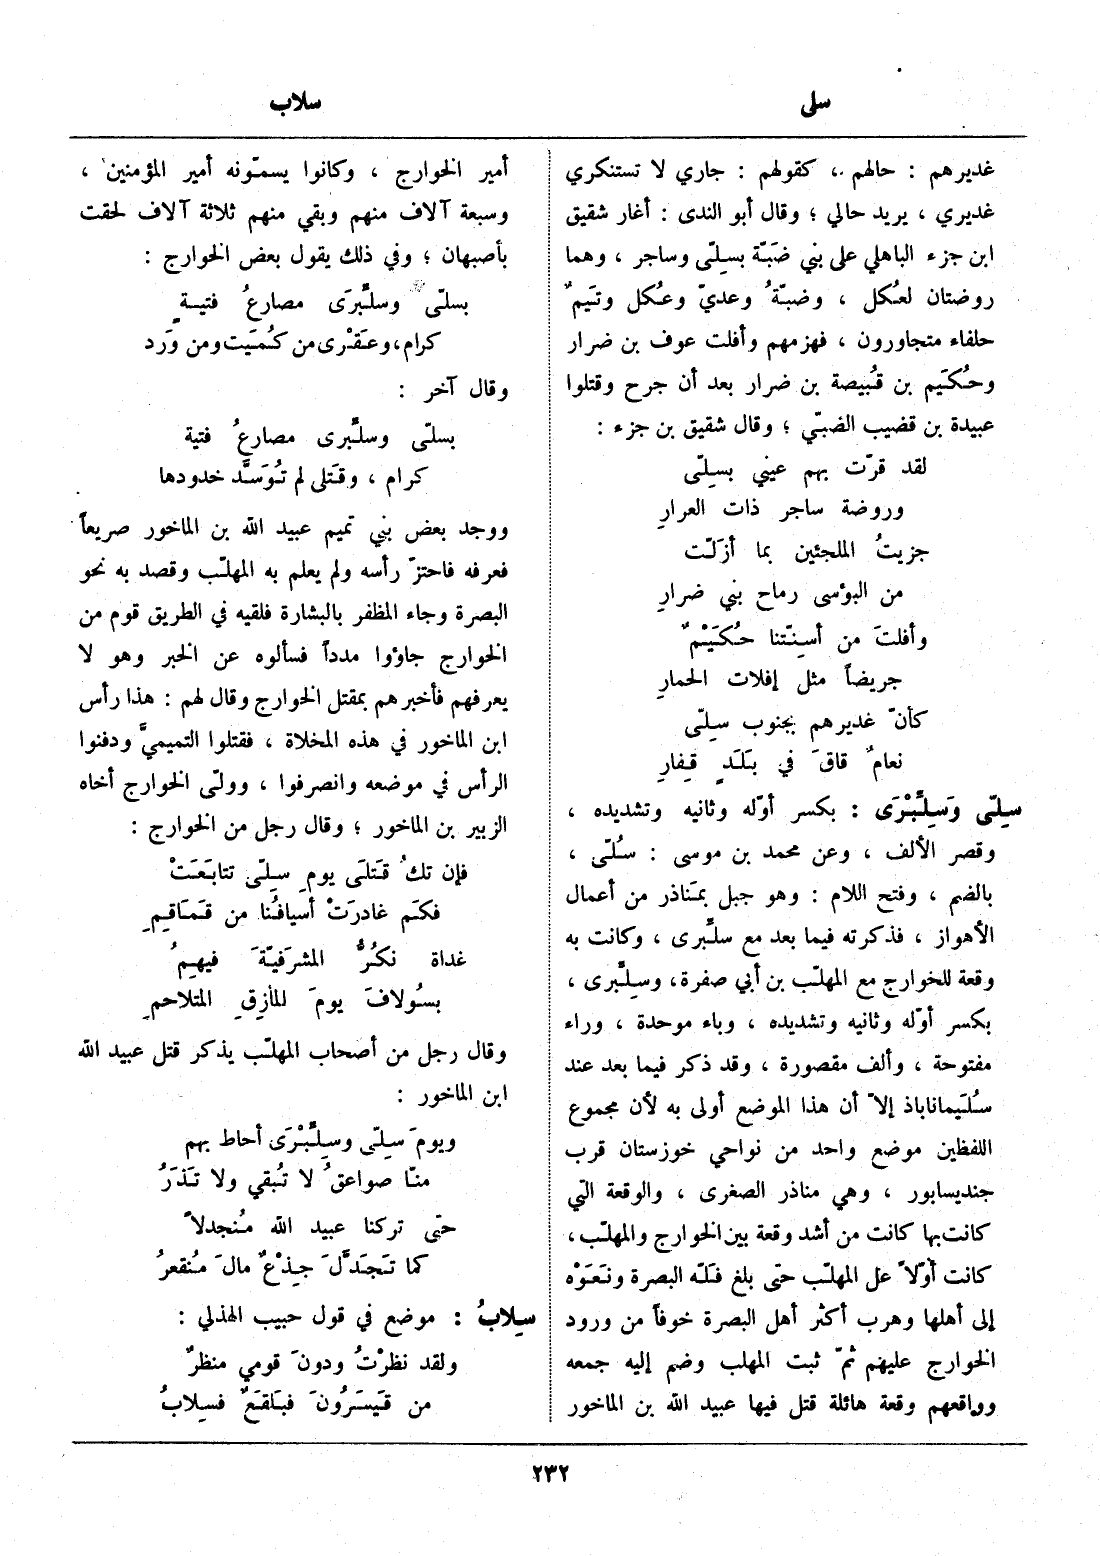 سلى
سلاب
غديرهم : حالهم ، كقولهم : جاري لا تستنكري
غديري ، يريد حالي ؛ وقال أبو الندى : أغار شقيق
ابن جزء الباهلي على بني ضَبّة بسِلّى وساجر ، وهما
روضتان لعُكل ، وضبّةُ وعديّ وعُكل وتَيمٌ
حلفاء متجاورون ، فهزمهم وأفلت عوف بن ضرار
وحُكَيم بن قُبيصة بن ضرار بعد أن جرح وقتلوا
عبيدة بن قضيب الضبّي ؛ وقال شقيق بن جزء :
لقد قرّت بهم عيني بسِلّى
وروضة ساجر ذات العرارِ
جزيتُ الملجئين بما أزَلّت
من البؤسى رماح بني ضرارِ
وأفلتَ من أسِنّتنا حُكَيْمٌ
جريضاً مثل إفلات الحمارِ
كأنّ غديرهم بجنوب سلّى
نعامٌ قاقَ في بَلَدٍ قِفارِ
سِلّى وَسِلَّبْرَى : بكسر أوّله وثانيه وتشديده ،
وقصر الألف ، وعن محمد بن موسى : سُلّى ،
بالضم ، وفتح اللام : وهو جبل بمَناذر من أعمال
الأهواز ، فذكرته فيما بعد مع سلَّبرى ، وكانت به
وقعة للخوارج مع المهلّب بن أبي صفرة، وسِلَّبرى ،
بكسر أوّله وثانيه وتشديده ، وباء موحدة ، وراء
مفتوحة ، وألف مقصورة ، وقد ذكر فيما بعد عند
سُلَيماناباذ إلاّ أن هذا الموضع أولى به لأن مجموع
اللفظين موضع واحد من نواحي خوزستان قرب
جنديسابور ، وهي مناذر الصغرى ، والوقعة التي
كانت بها كانت من أشد وقعة بين الخوارج والمهلّب،
كانت أوّلاً على المهلّب حتى بلغ فَلّه البصرة ونَعَوْه
إلى أهلها وهرب أكثر أهل البصرة خوفاً من ورود
الخوارج عليهم ثمّ ثبت المهلب وضم إليه جمعه
وواقعهم وقعة هائلة قتل فيها عبيد الله بن الماخور
أمير الخوارج ، وكانوا يسمّونه أمير المؤمنين ،
وسبعة آلاف منهم وبقي منهم ثلاثة آلاف لحقت
بأصبهان ؛ وفي ذلك يقول بعض الخوارج :
بسلّى وسلَّبرَى مصارعُ فتيةٍ
كرام، وعَقْرى من كُمَيت ومن وَرد
وقال آخر :
بسلّى وسلَّبرى مصارعُ فتية
كرام ، وقَتلى لم تُوَسَّد خدودها
ووجد بعض بني تميم عبيد الله بن الماخور صريعاً
فعرفه فاحتزّ رأسه ولم يعلم به المهلّب وقصد به نحو
البصرة وجاء المظفر بالبشارة فلقيه في الطريق قوم من
الخوارج جاؤوا مدداً فسألوه عن الخبر وهو لا
يعرفهم فأخبرهم بمقتل الخوارج وقال لهم : هذا رأس
ابن الماخور في هذه المخلاة ، فقتلوا التميميَّ ودفنوا
الرأس في موضعه وانصرفوا ، وولّى الخوارج أخاه
الزبير بن الماخور ؛ وقال رجل من الخوارج :
فإن تكُ قَتلَى يومِ سِلّى تتابَعَتْ
فكَم غادرَتْ أسيافُنا من قَمَاقِمِ
غداة نكُرُّ المشرَفيّةَ فيهِمُ
بسُولافَ يومَ المأزِقِ المتلاحمِ
وقال رجل من أصحاب المهلّب يذكر قتل عبيد الله
ابن الماخور :
ويومَ سلِّى وسِلَّبْرَى أحاط بهم
منّا صواعقُ لا تُبقي ولا تَذَرُ
حتى تركنا عبيد الله مُنجدلاً
كما تَجَدَّلَ جِذْعٌ مالَ مُنقعرُ
سِلابُ : موضع في قول حبيب الهذلي :
ولقد نظرْتُ ودونَ قومي منظرٌ
من قَيسَرُونَ فبَلقَعٌ فسِلابُ
٢٣٢